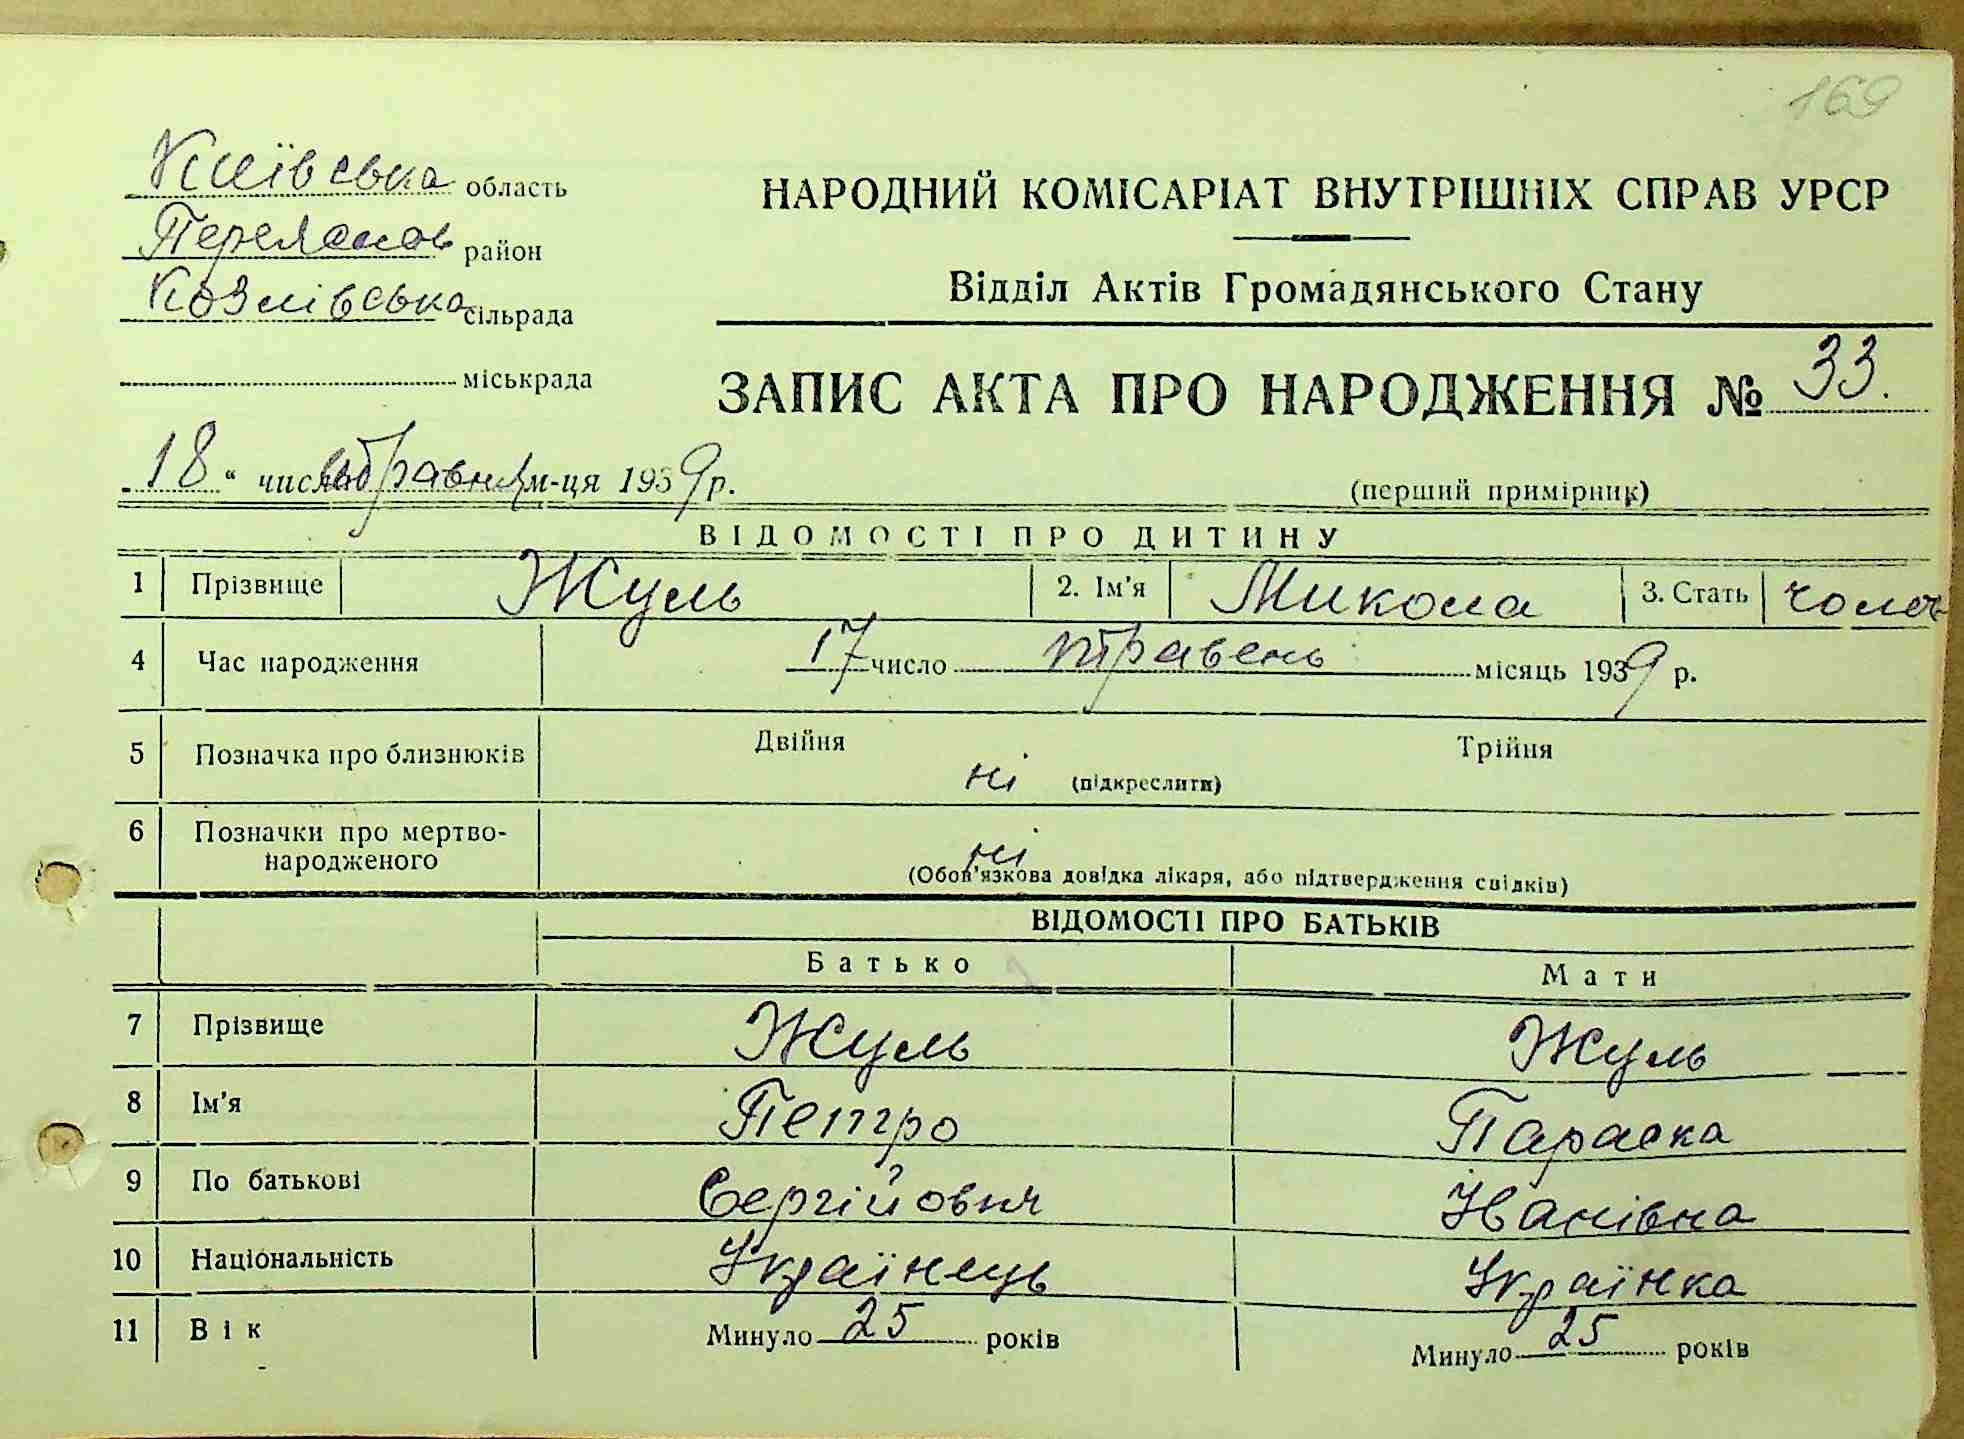 169
Київська область
Переяслав район
Козлівська сільрада
міськрада
НАРОДНИЙ КОМІСАРІАТ ВНУТРІШНІХ СПРАВ УРСР
Відділ Актів Громадянського Стану
ЗАПИС АКТА ПРО НАРОДЖЕННЯ № 33.
„18“ число травня м-ця 1939 р.
(перший примірник)
ВІДОМОСТІ ПРО ДИТИНУ
1 Прізвище Жуль 2. Ім'я Микола 3. Стать чолов
4 Час народження 17 число травень місяць 1939 р.
5 Позначка про близнюків Двійня Трійня
ні (підкреслити)
6 Позначки про мертво-
народженого
ні
(Обов'язкова довідка лікаря, або підтвердження свідків)
ВІДОМОСТІ ПРО БАТЬКІВ
Батько Мати
7 Прізвище Жуль Жуль
8 Ім'я Петро Параска
9 По батькові Сергійович Іванівна
10 Національність Українець Українка
11 Вік Минуло 25 років Минуло 25 років